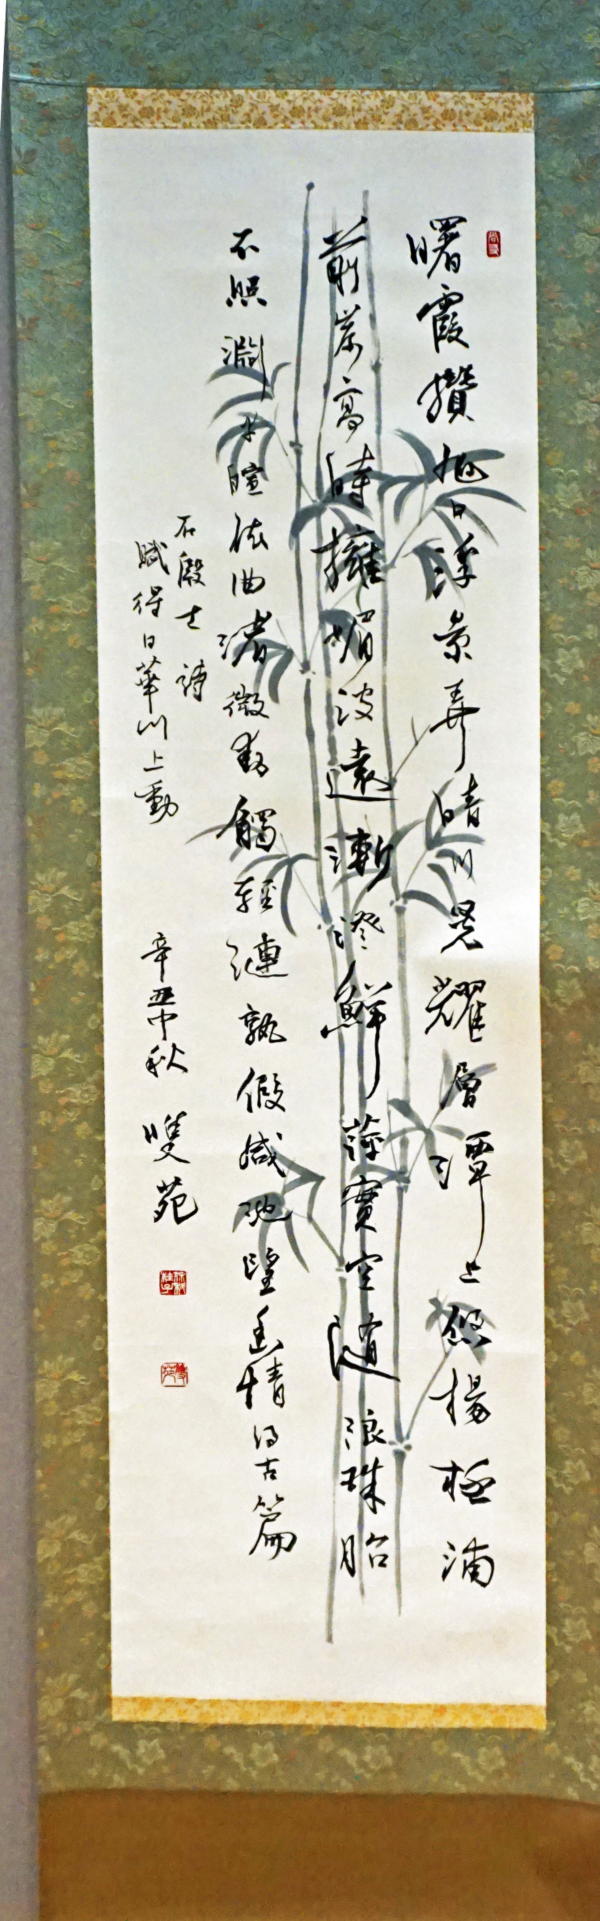 曙霞攢旭日浮景弄晴川晃耀層潭上悠揚極浦
前岸高時擁媚波遠漸澄鮮萍實空隨浪珠胎
不照淵早暄依曲渚微動觸輕漣孰假咸池望幽情得古篇
石殷士 詩
賦得日華川上動
辛丑中秋 苑